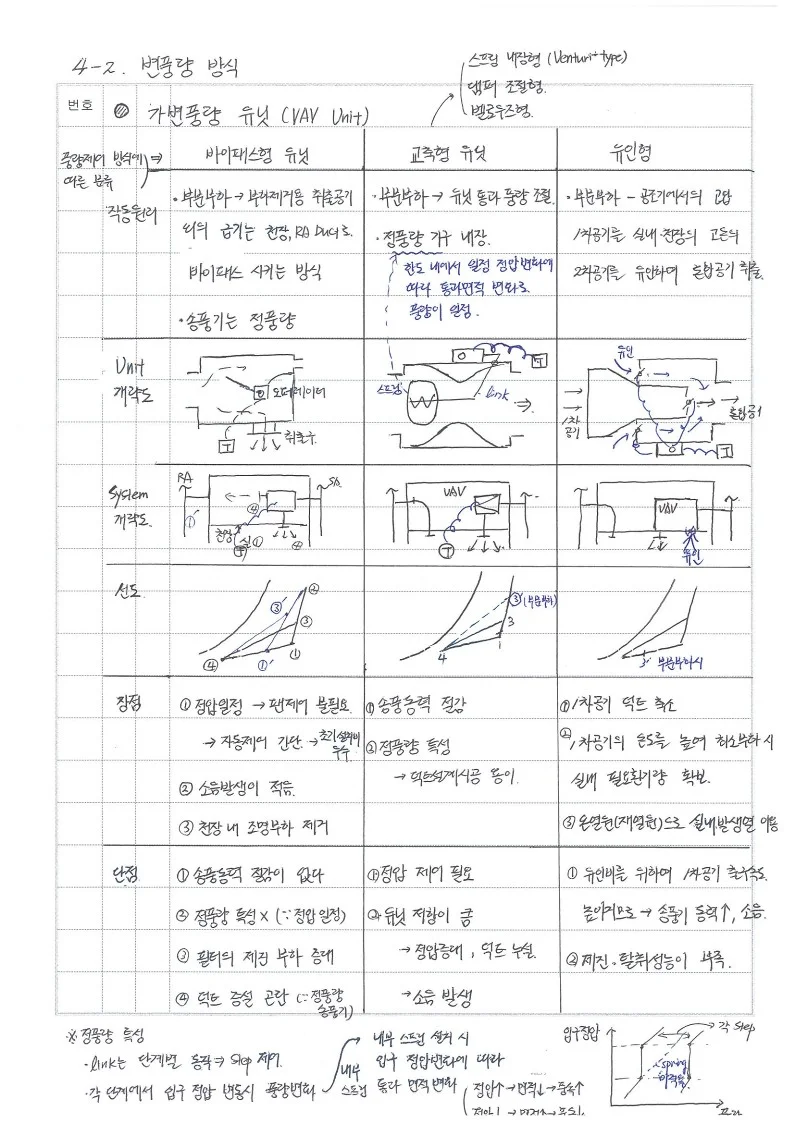 4-2. 변풍량 방식
스프링 내장형 (Venturi type)
댐퍼 조절형.
벨로우즈형.
번호
가변풍량 유닛 (VAV Unit)
풍량제어 방식에 ⇒
따른 분류
바이패스형 유닛
교축형 유닛
유인형
작동원리
· 부분부하 → 부하제거용 취출공기
외의 급기는 천장, RA Duct로
바이패스 시키는 방식
· 송풍기는 정풍량
· 부분부하 → 유닛 통과 풍량 조절.
· 정풍량 기구 내장.
한도 내에서 일정 정압변화에
따라 통과면적 변화로
풍량이 일정.
· 부분부하 - 공조기에서의 고압
1차공기를 실내·천장의 고온의
2차공기를 유인하여 혼합공기 취출.
Unit
개략도
오퍼레이터
취출구
T
스프링
link
T
유인
1차
공기
혼합공기
T
System
개략도.
RA
SA
①'
④
천장
실①
④
T
VAV
T
VAV
유인
선도.
②
③'
③
④
①'
①
③' (부분부하)
3
4
1
3' 부분부하시
장점
① 정압일정 → 팬제어 불필요.
→ 자동제어 간단. → 초기 설비비
우수
② 소음발생이 적음.
③ 천장 내 조명부하 제거
① 송풍동력 절감
② 정풍량 특성
→ 덕트설계시공 용이.
① 1차공기 덕트 축소
② 1차공기의 온도를 높여 최소부하 시
실내 필요환기량 확보.
③ 온열원(재열원)으로 실내발생열 이용
단점
① 송풍동력 절감이 없다
② 정풍량 특성 X (∵ 정압 일정)
③ 필터의 제진 부하 증대
④ 덕트 증설 곤란 (∵ 정풍량
송풍기)
① 정압 제어 필요
② 유닛 저항이 큼
→ 정압증대, 덕트 누설.
→ 소음 발생
① 유인비를 위하여 1차공기 출구속도.
높아지므로 → 송풍기 동력↑, 소음.
② 제진·탈취성능이 부족.
※ 정풍량 특성
· link는 단계별 동작 ⇒ Step 제어.
· 각 단계에서 입구 정압 변동시 풍량변화
내부 스프링 설치 시
내부 입구 정압변화에 따라
스프링 통과 면적 변화
정압↑ → 면적↓ → 풍속↑
입구정압
각 step
spring